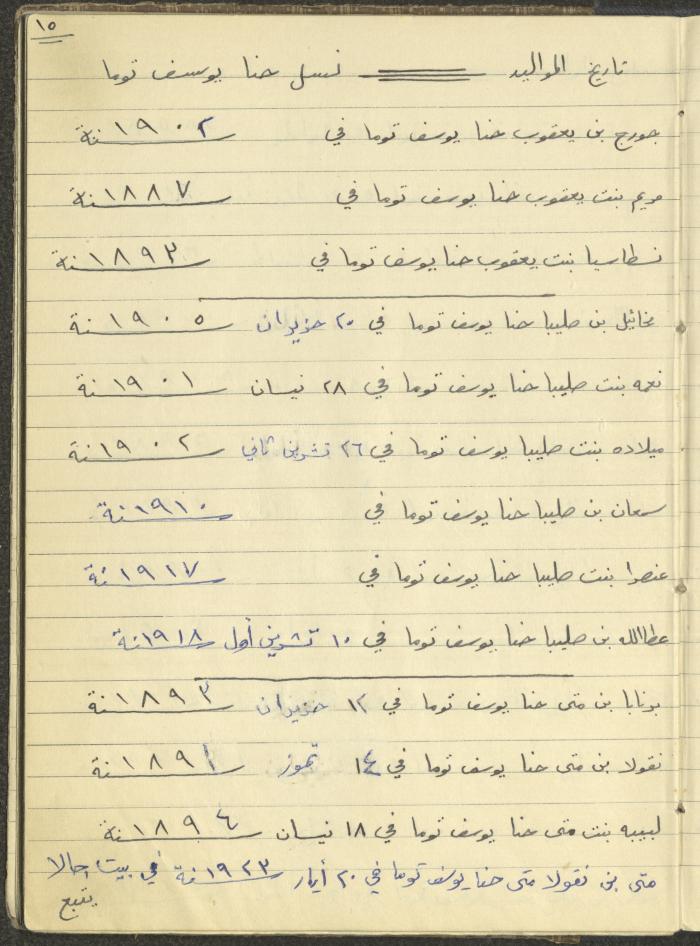 ١٥
تاريخ المواليد نسل حنا يوسف توما
جورج بن يعقوب حنا يوسف توما في سنة ١٩٠٢
مريم بنت يعقوب حنا يوسف توما في سنة ١٨٨٧
نسطاسيا بنت يعقوب حنا يوسف توما في سنة ١٨٩٣
مخائيل بن صليبا حنا يوسف توما في ٢٠ حزيران سنة ١٩٠٥
نعمه بنت صليبا حنا يوسف توما في ٢٨ نيسان سنة ١٩٠١
ميلاده بنت صليبا يوسف توما في ٢٦ تشرين ثاني سنة ١٩٠٢
سمعان بن صليبا حنا يوسف توما في سنة ١٩١٠
عنصرا بنت صليبا حنا يوسف توما في سنة ١٩١٧
عطاالله بن صليبا حنا يوسف توما في ١٠ تشرين أول سنة ١٩١٨
برنابا بن متى حنا يوسف توما في ١٢ حزيران سنة ١٨٩٣
نقولا بن متى حنا يوسف توما في ١٤ تموز سنة ١٨٩١
لبيبه بنت متى حنا يوسف توما في ١٨ نيسان سنة ١٨٩٤
متى بن نقولا متى حنا يوسف توما في ٢٠ أيار سنة ١٩٢٣ في بيت جالا
يتبع